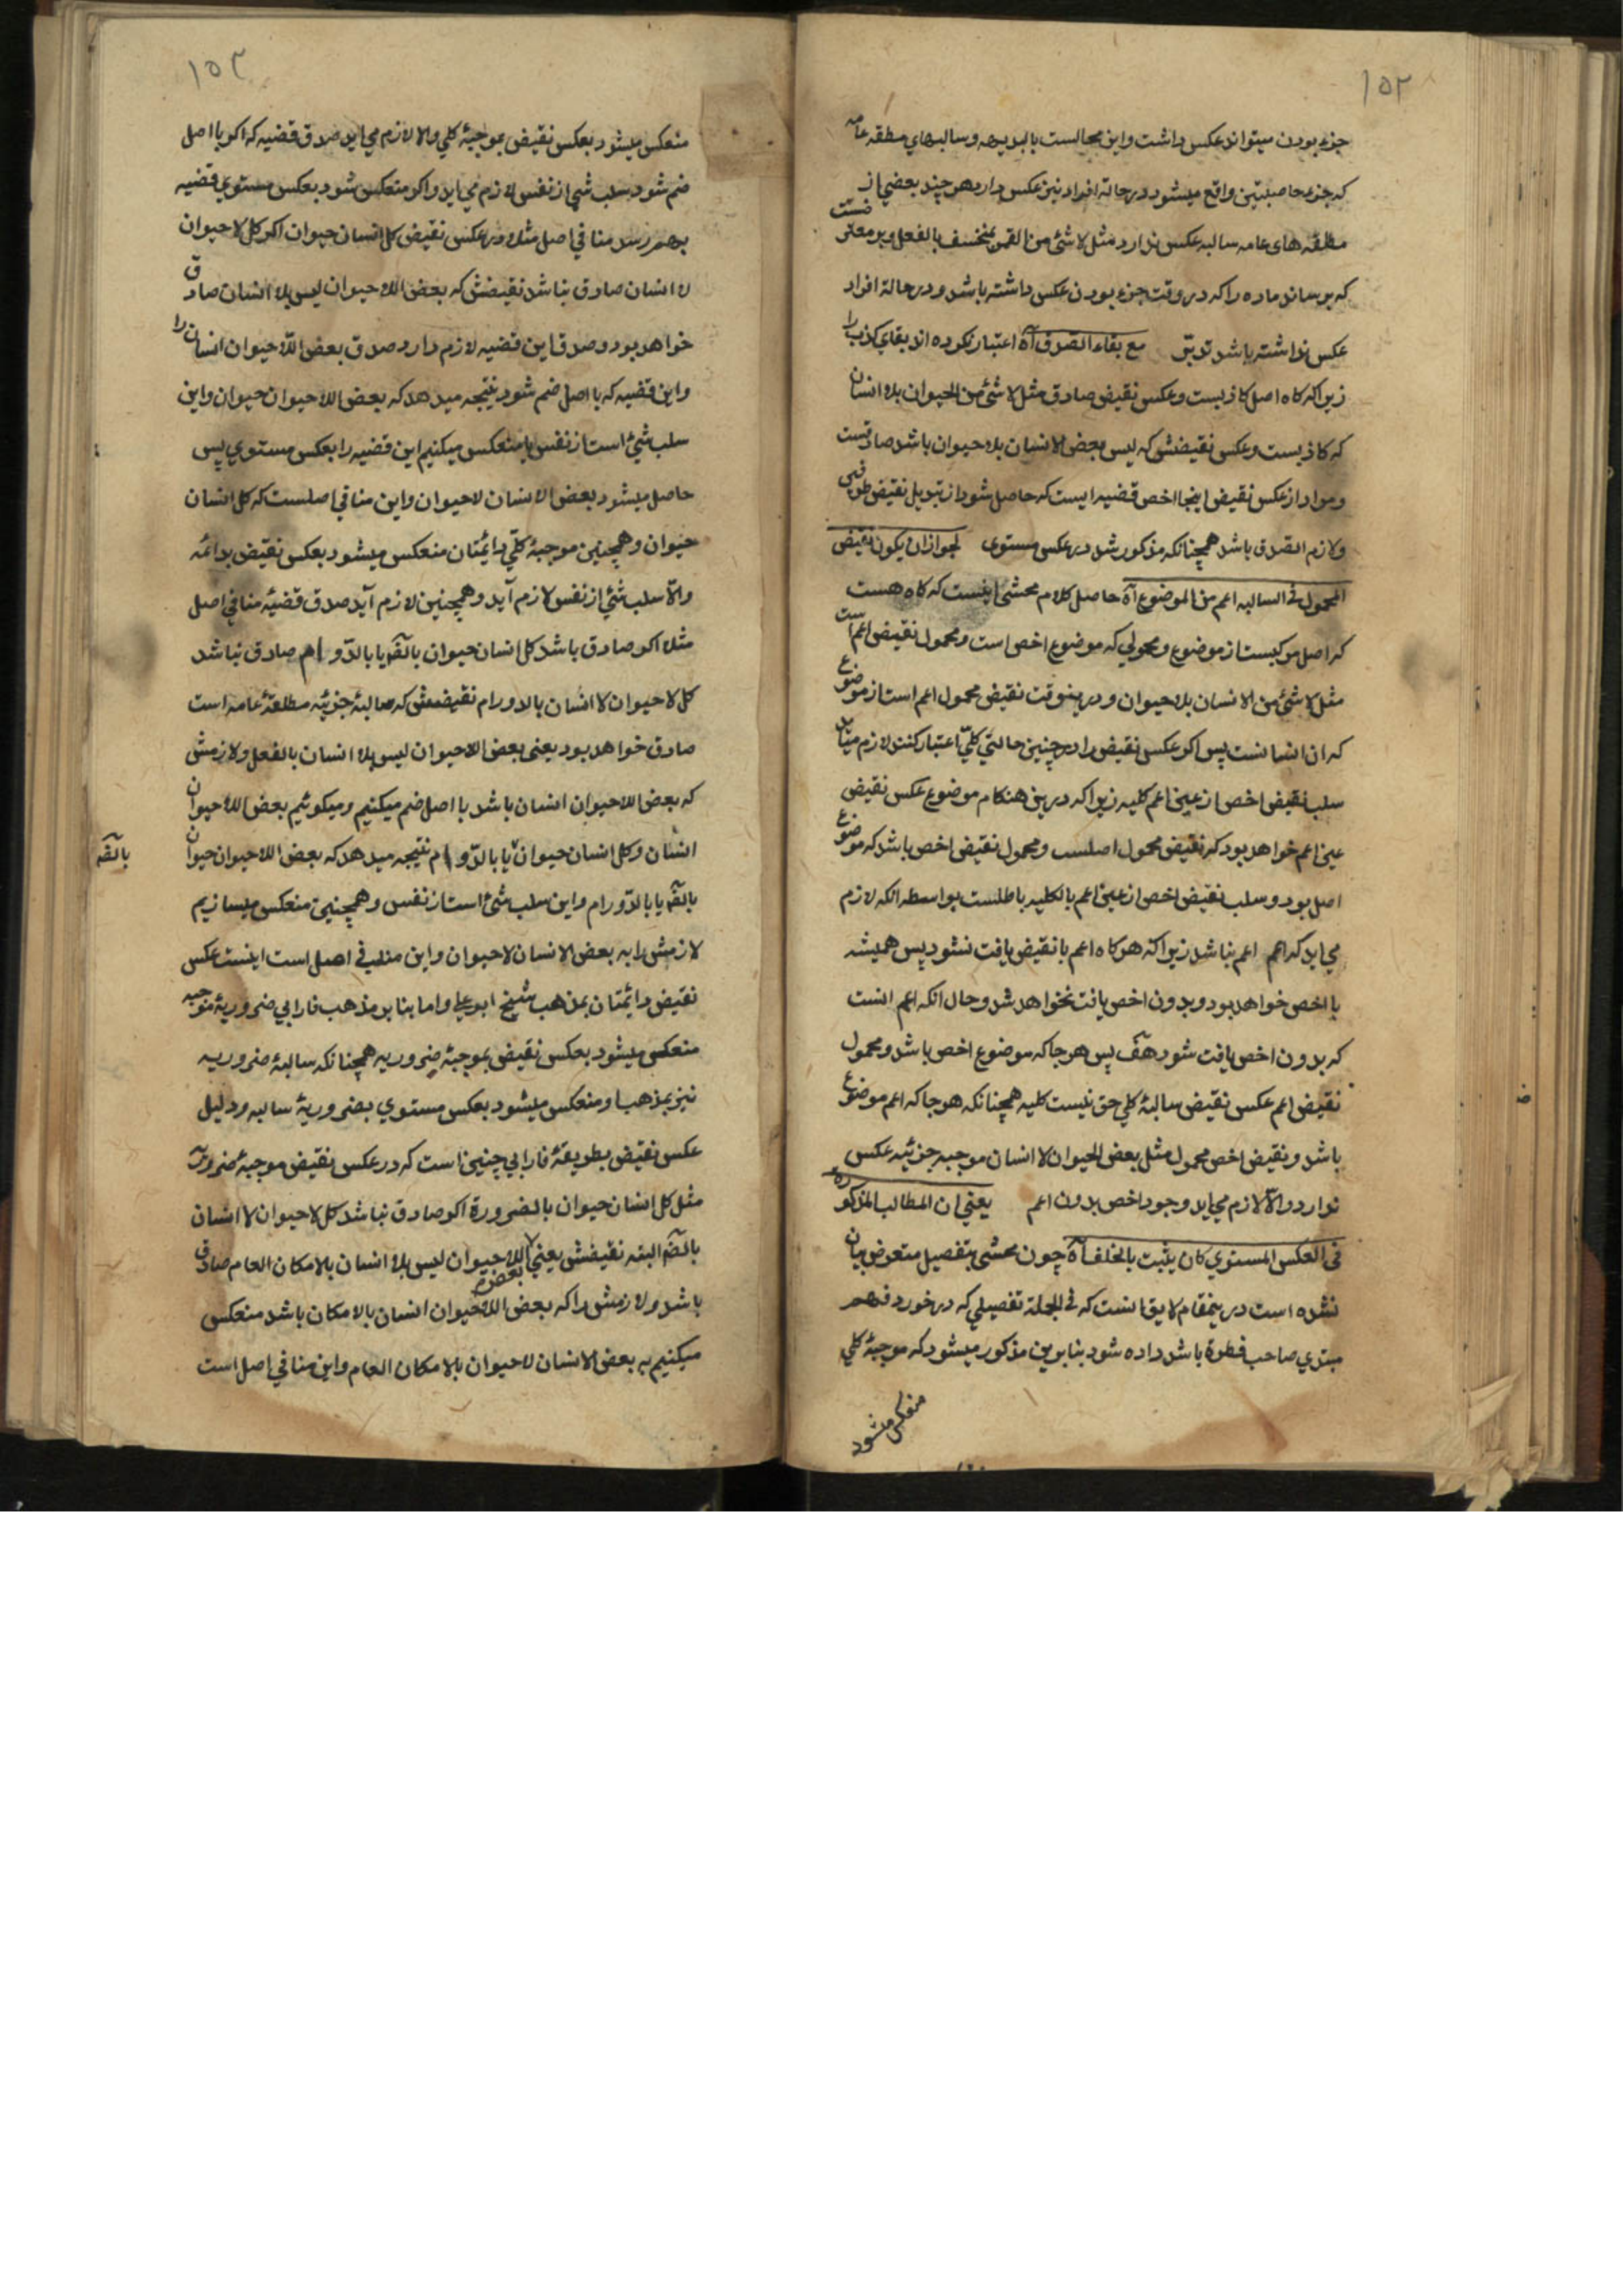 ١٥٢
جزء بودن میتواند عکس داشت و این محالست بالبدیهه و سالبهای مطقه عامه
که جزء حاصلتین واقع میشود در حالة افراد نیز عکس دارد هر چند بعضی از
مطلقه های عامه سالبه عکس ندارد مثل لا شئ من القمر بمنخسف بالفعل و بر معترضست
که برساند ماده را که در وقت جزء بودن عکس داشته باشد و در حالة افراد
عکس نداشته باشد تدبّر مع بقاء الصدق آه اعتبار نکرده اند بقای کذب را
زیرا که کاه اصل کاذبست و عکس نقیض صادق مثل لا شئ من الحیوان بلا انسان
که کاذبست و عکس نقیضش که لیس بعض الانسان بلا حیوان باشد صادقست
و مراد از عکس نقیض اینجا اخص قضیه ایست که حاصل شود از تبدیل نقیض طرفین
و لازم الصدق باشد همچنانکه مذکور شد در عکس مستوی لجواز ان یکون نقیض
المحمول فی السالبه اعم من الموضوع آه حاصل کلام محشی اینست که کاه هست
که اصل مرکبست از موضوع و محمولی که موضوع اخص است و محمول نقیض اعم است
مثل لا شئ من الانسان بلا حیوان و درینوقت نقیض محمول اعم است از موضوع
که ان انسانست پس اکر عکس نقیض را در چنین حالتی کلیّ اعتبار کنند لازم میاید
سلب نقیض اخص از عین اعم کلیه زیرا که درین هنکام موضوع عکس نقیض
عین اعم خواهد بود که نقیض محمول اصلست و محمول نقیض اخص باشد که موضوع
اصل بود و سلب نقیض اخص از عین اعم بالکلیه باطلست بواسطه انکه لازم
می اید که اعم اعم نباشد زیرا که هر کاه اعم با نقیض یافت نشود پس همیشه
با اخص خواهد بود و بدون اخص یافت نخواهد شد و حال انکه اعم انست
که بدون اخص یافت شود هف پس هر جا که موضوع اخص باشد و محمول
نقیض اعم عکس نقیض سالبهٔ کلی حق نیست کلیه همچنانکه هر جا که اعم موضوع
باشد و نقیض اخص محمول مثل بعض الحیوان لا انسان موجبه جزئیه عکس
ندارد و الّا لازم می اید وجود اخص بدون اعم یعنی ان المطالب المذکورة
فی العکس المستوی کان یثبت بالخلف آه چون محشی بتفصیل متعرض بیان
نشده است درینمقام لایق انست که فی الجملة تفصیلی که در خورد فهم
مبتدی صاحب فطرة باشد داده شود بنا برین مذکور میشود که موجبهٔ کلی
منعکس میشود
١٥٣
منعکس میشود بعکس نقیض بموجبهٔ کلی والا لازم می اید صدق قضیه که اکر با اصل
ضم شود سلب شئ از نفس لازم می اید و اکر منعکس شود بعکس مستوی قضیه
بهم رسد منافی اصل مثلا در عکس نقیض کل انسان حیوان اکر کل لا حیوان
لا انسان صادق نباشد نقیضش که بعض اللا حیوان لیس بلا انسان صادق
خواهد بود و صدق این قضیه لازم دارد صدق بعض اللا حیوان انسان را
و این قضیه که با اصل ضم شود نتیجه میدهد که بعض اللا حیوان حیوان و این
سلب شئ است از نفس یا منعکس میکنیم این قضیه را بعکس مستوی پس
حاصل میشود بعض الانسان لا حیوان و این منافی اصلست که کل انسان
حیوان و همچنین موجبهٔ کلّی دائمتان منعکس میشود بعکس نقیض بدائمه
والّا سلب شئ از نفس لازم آید و همچنین لازم آید صدق قضیهٔ منافی اصل
مثلا اکر صادق باشد کل انسان حیوان بالضّ یا بالدّوام هم صادق نباشد
کل لا حیوان لا انسان بالدوام نقیضش که سالبهٔ جزئیّه مطلقهٔ عامه است
صادق خواهد بود یعنی بعض اللا حیوان لیس بلا انسان بالفعل و لازمش
که بعض اللا حیوان انسان باشد با اصل ضم میکنیم و میکوئیم بعض اللا حیوان
انسان و کل انسان حیوان یا بالدّوام نتیجه میدهد که بعض اللا حیوان حیوان
بالضّه
بالضّ یا بالدّوام و این سلب شئ است از نفس و همچنین منعکس میسازیم
لازمش را به بعض الانسان لا حیوان و این منافی اصل است اینست عکس
نقیض دائمتان بمذهب شیخ ابو علی و اما بنا بر مذهب فارابی ضروریهٔ موجبه
منعکس میشود بعکس نقیض بموجبهٔ ضروریه همچنانکه سالبهٔ ضروریه
نیز بمذهب او منعکس میشود بعکس مستوی بضروریهٔ سالبه و دلیل
عکس نقیض بطریقهٔ فارابی چنین است که در عکس نقیض موجبهٔ ضروریّه
مثل کل انسان حیوان بالضرورة اکر صادق نباشد کل لا حیوان لا انسان
بالضّ البته نقیضش یعنی بعض اللا حیوان لیس بلا انسان بالامکان العام صادق
باشد و لازمش را که بعض اللا حیوان انسان بالامکان باشد منعکس
میکنیم به بعض الانسان لا حیوان بالامکان العام و این منافی اصل است